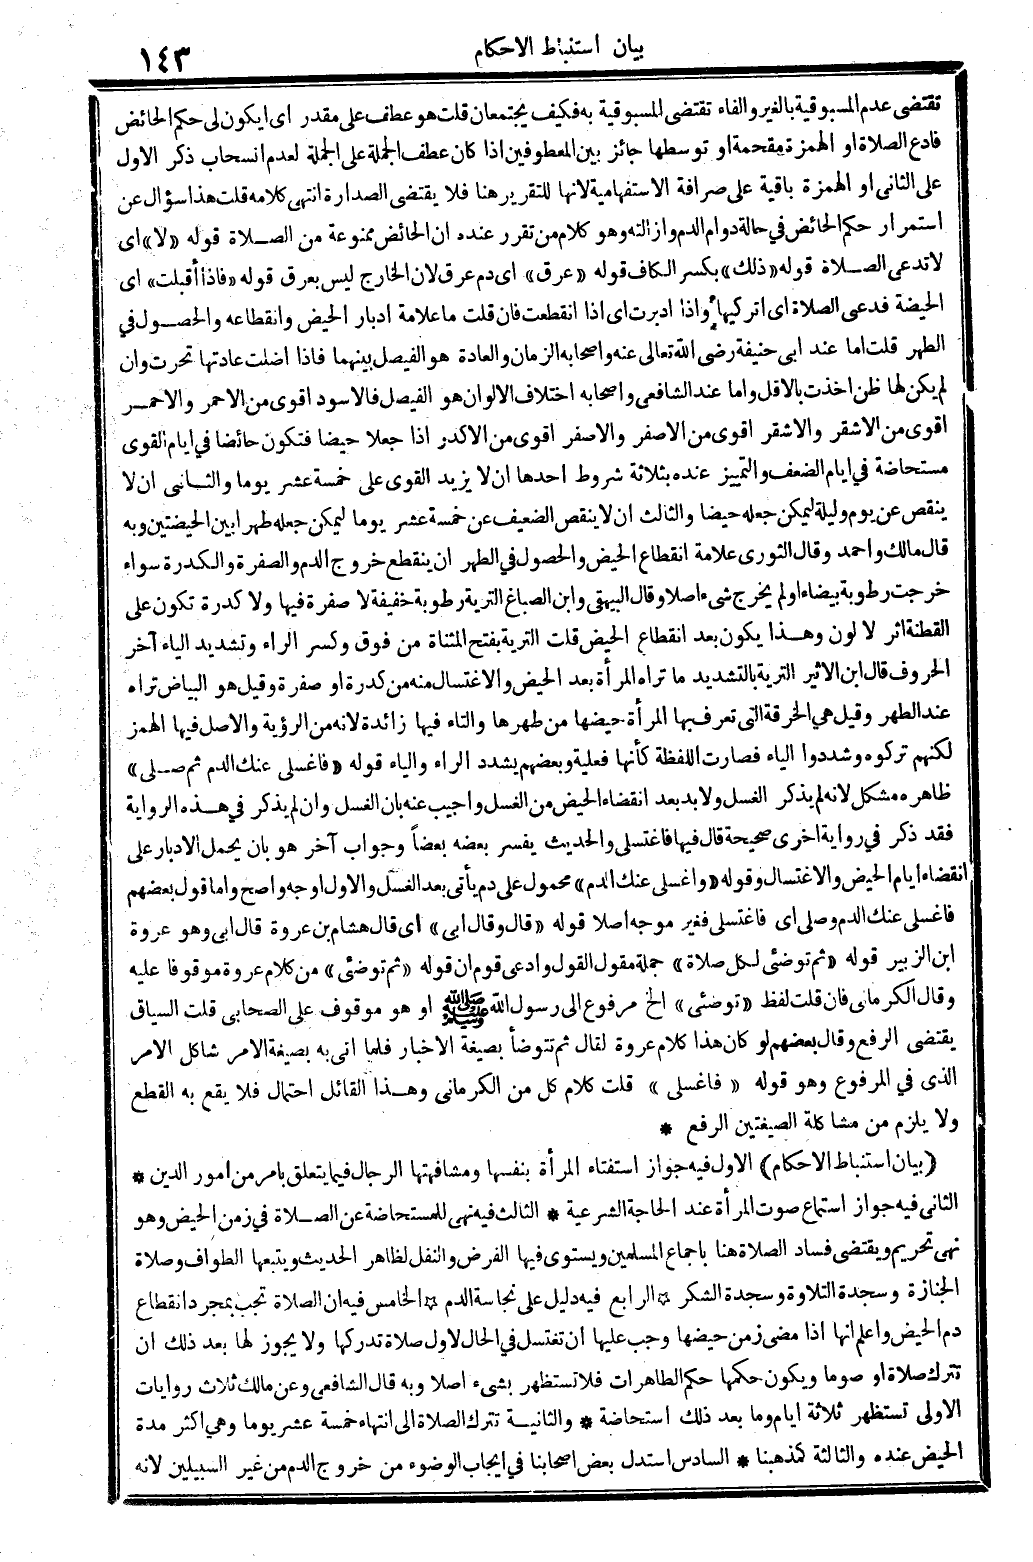 ١٤٣
بيان استنباط الاحكام
تقتضى عدم المسبوقية بالغير والفاء تقتضى المسبوقية به فكيف يجتمعان قلت هو عطف على مقدر اى ايكون لى حكم الحائض
فادع الصلاة او الهمزة مقحمة او توسطها جائز بين المعطوفين اذا كان عطف الجملة على الجملة لعدم انسحاب ذكر الاول
على الثانى او الهمزة باقية على صرافة الاستفهامية لانها للتقرير هنا فلا يقتضى الصدارة انتهى كلامه قلت هذا سؤال عن
استمرار حكم الحائض في حالة دوام الدم وازالته وهو كلام من تقرر عنده ان الحائض ممنوعة من الصلاة قوله «لا» اى
لا تدعى الصلاة قوله «ذلك» بكسر الكاف قوله «عرق» اى دم عرق لان الخارج ليس بعرق قوله «فاذا أقبلت» اى
الحيضة فدعى الصلاة اى اتركيها واذا ادبرت اى اذا انقطعت فان قلت ما علامة ادبار الحيض وانقطاعه والحصول في
الطهر قلت اما عند ابى حنيفة رضى الله تعالى عنه واصحابه الزمان والعادة هو الفيصل بينهما فاذا اضلت عادتها تحرت وان
لم يكن لها ظن اخذت بالاقل واما عند الشافعى واصحابه اختلاف الالوان هو الفيصل فالاسود اقوى من الاحمر والاحمر
اقوى من الاشقر والاشقر اقوى من الاصفر والاصفر اقوى من الاكدر اذا جعلا حيضا فتكون حائضا في ايام القوى
مستحاضة في ايام الضعف والتمييز عنده بثلاثة شروط احدها ان لا يزيد القوى على خمسة عشر يوما والثانى ان لا
ينقص عن يوم وليلة ليمكن جعله حيضا والثالث ان لا ينقص الضعيف عن خمسة عشر يوما ليمكن جعله طهرا بين الحيضتين وبه
قال مالك واحمد وقال الثورى علامة انقطاع الحيض والحصول في الطهر ان ينقطع خروج الدم والصفرة والكدرة سواء
خرجت رطوبة بيضاء او لم يخرج شىء اصلا وقال البيهقى وابن الصباغ الترية رطوبة خفيفة لا صفرة فيها ولا كدرة تكون على
القطنة اثر لا لون وهذا يكون بعد انقطاع الحيض قلت الترية بفتح المثناة من فوق وكسر الراء وتشديد الياء آخر
الحروف قال ابن الاثير الترية بالتشديد ما تراه المرأة بعد الحيض والاغتسال منه من كدرة او صفرة وقيل هو البياض تراه
عند الطهر وقيل هي الخرقة التى تعرف بها المرأة حيضها من طهرها والتاء فيها زائدة لانه من الرؤية والاصل فيها الهمز
لكنهم تركوه وشددوا الياء فصارت اللفظة كأنها فعلية وبعضهم يشدد الراء والياء قوله «فاغسلى عنك الدم ثم صلى»
ظاهره مشكل لانه لم يذكر الغسل ولا بد بعد انقضاء الحيض من الغسل واجيب عنه بان الغسل وان لم يذكر في هذه الرواية
فقد ذكر في رواية اخرى صحيحة قال فيها فاغتسلى والحديث يفسر بعضه بعضاً وجواب آخر هو بان يحمل الادبار على
انقضاء ايام الحيض والاغتسال وقوله «واغسلى عنك الدم» محمول على دم يأتى بعد الغسل والاول اوجه واصح واما قول بعضهم
فاغسلى عنك الدم وصلى اى فاغتسلى فغير موجه اصلا قوله «قال وقال ابى» اى قال هشام بن عروة قال ابى وهو عروة
ابن الزبير قوله «ثم توضئى لكل صلاة» جملة مقول القول وادعى قوم ان قوله «ثم توضئى» من كلام عروة موقوفا عليه
وقال الكرمانى فان قلت لفظ «توضئى» الخ مرفوع الى رسول الله ﷺ او هو موقوف على الصحابى قلت السياق
يقتضى الرفع وقال بعضهم لو كان هذا كلام عروة لقال ثم تتوضأ بصيغة الاخبار فلما اتى به بصيغة الامر شاكل الامر
الذى في المرفوع وهو قوله « فاغسلى » قلت كلام كل من الكرمانى وهذا القائل احتمال فلا يقع به القطع
ولا يلزم من مشاكلة الصيغتين الرفع *
(بيان استنباط الاحكام) الاول فيه جواز استفتاء المرأة بنفسها ومشافهتها الرجال فيما يتعلق بامر من امور الدين *
الثانى فيه جواز استماع صوت المرأة عند الحاجة الشرعية * الثالث فيه نهى للمستحاضة عن الصلاة في زمن الحيض وهو
نهى تحريم ويقتضى فساد الصلاة هنا باجماع المسلمين ويستوى فيها الفرض والنفل لظاهر الحديث ويتبعها الطواف وصلاة
الجنازة وسجدة التلاوة وسجدة الشكر * الرابع فيه دليل على نجاسة الدم * الخامس فيه ان الصلاة تجب بمجرد انقطاع
دم الحيض واعلم انها اذا مضى زمن حيضها وجب عليها ان تغتسل في الحال لاول صلاة تدركها ولا يجوز لها بعد ذلك ان
تترك صلاة او صوما ويكون حكمها حكم الطاهرات فلا تستظهر بشىء اصلا وبه قال الشافعى وعن مالك ثلاث روايات
الاولى تستظهر ثلاثة ايام وما بعد ذلك استحاضة * والثانية تترك الصلاة الى انتهاء خمسة عشر يوما وهى اكثر مدة
الحيض عنده والثالثة كمذهبنا * السادس استدل بعض اصحابنا في ايجاب الوضوء من خروج الدم من غير السبيلين لانه